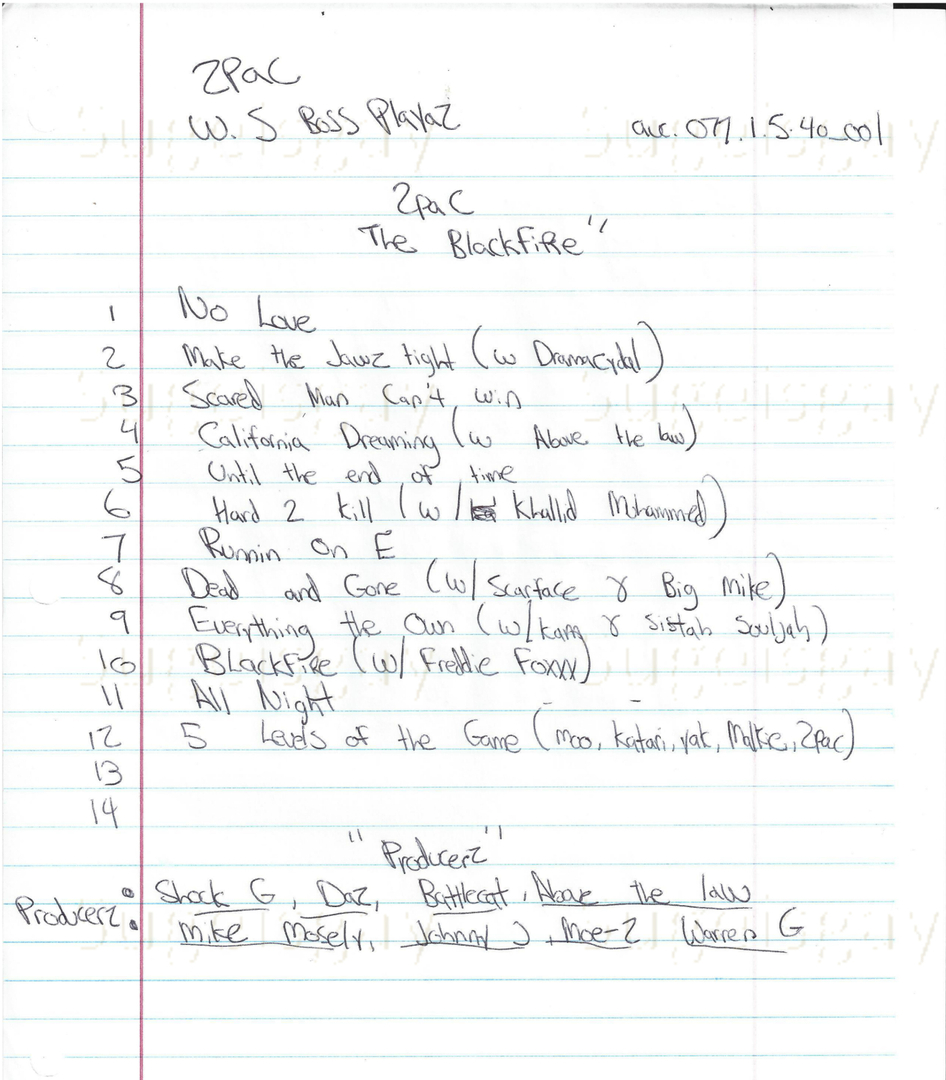 2Pac
W. S Boss Playaz
acc. 077.1.5.40_001
2pac
The BlackFire"
1 No Love
2 Make the Jawz tight (w Dramacydal)
3 Scared Man Can't win
4 California Dreaming (w Above the law)
5 Until the end of time
6 Hard 2 kill (w/ Khallid Mohammed)
7 Runnin on E
8 Dead and Gone (w/ Scarface & Big Mike)
9 Everything the Own (w/ kam & Sistah Souljah)
10 BlackFire (w/ Freddie Foxxx)
11 All Night
12 5 Levels of the Game (moo, katari, yak, Malkie, 2pac)
13
14
"Producerz"
Producerz: Shock G, Daz, Battlecat, Above the law
Mike Mosely, Johnny J, Moe-Z Warren G